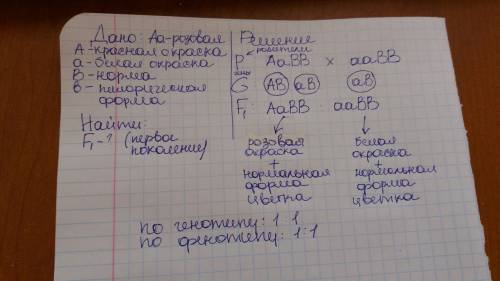 Дано: Аа-розовая
А-красная окраска
а-белая окраска
В-норма
в-пилорическая форма
Найти:
F₁-? (первое поколение)
Решение
родители
P AaBB x aaBB
гаметы
G AB aB aB
F₁: AaBB : aaBB
розовая окраска + нормальная форма цветка
белая окраска + нормальная форма цветка
по генотипу: 1:1
по фенотипу: 1:1